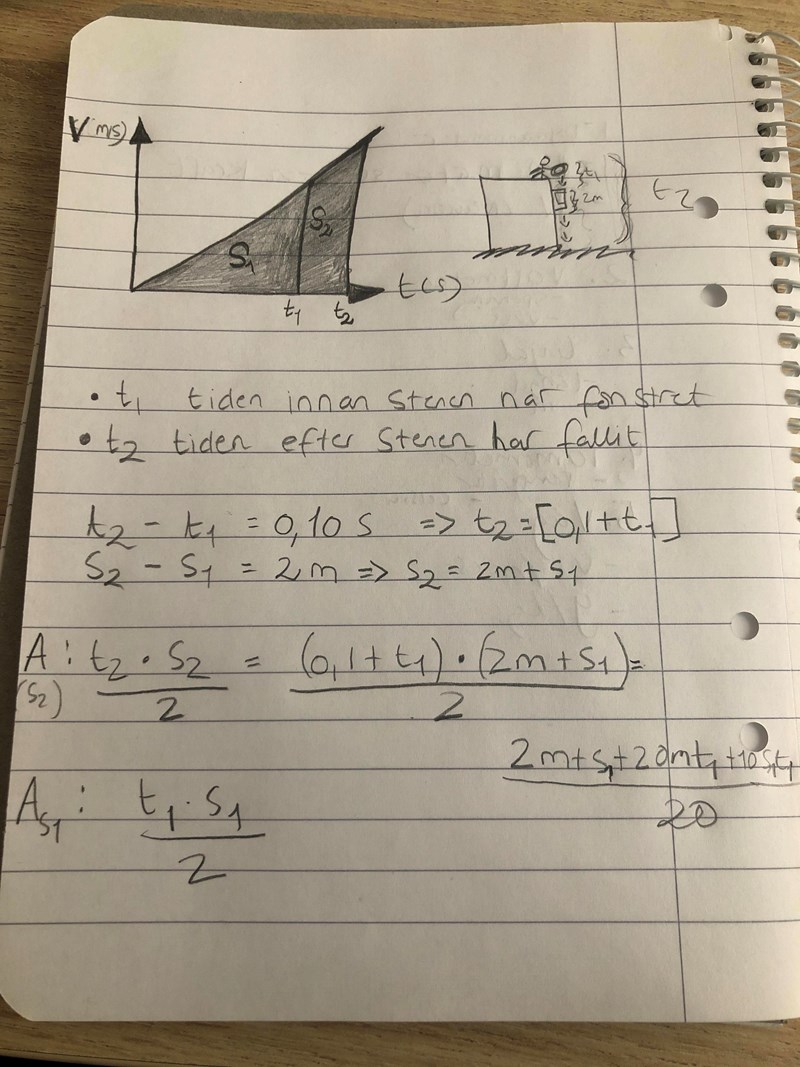 V (m/s)
S1
S2
t1
t2
t(s)
t1
2m
t2
• t1 tiden innan stenen når fönstret
• t2 tiden efter stenen har fallit
t2 - t1 = 0,10 s => t2 = [0,1 + t1]
S2 - S1 = 2m => S2 = 2m + S1
A(S2) : t2 · S2 / 2 = (0,1 + t1) · (2m + S1) / 2 =
2m + S1 + 20mt1 + 10S1t1 / 20
AS1 : t1 · S1 / 2